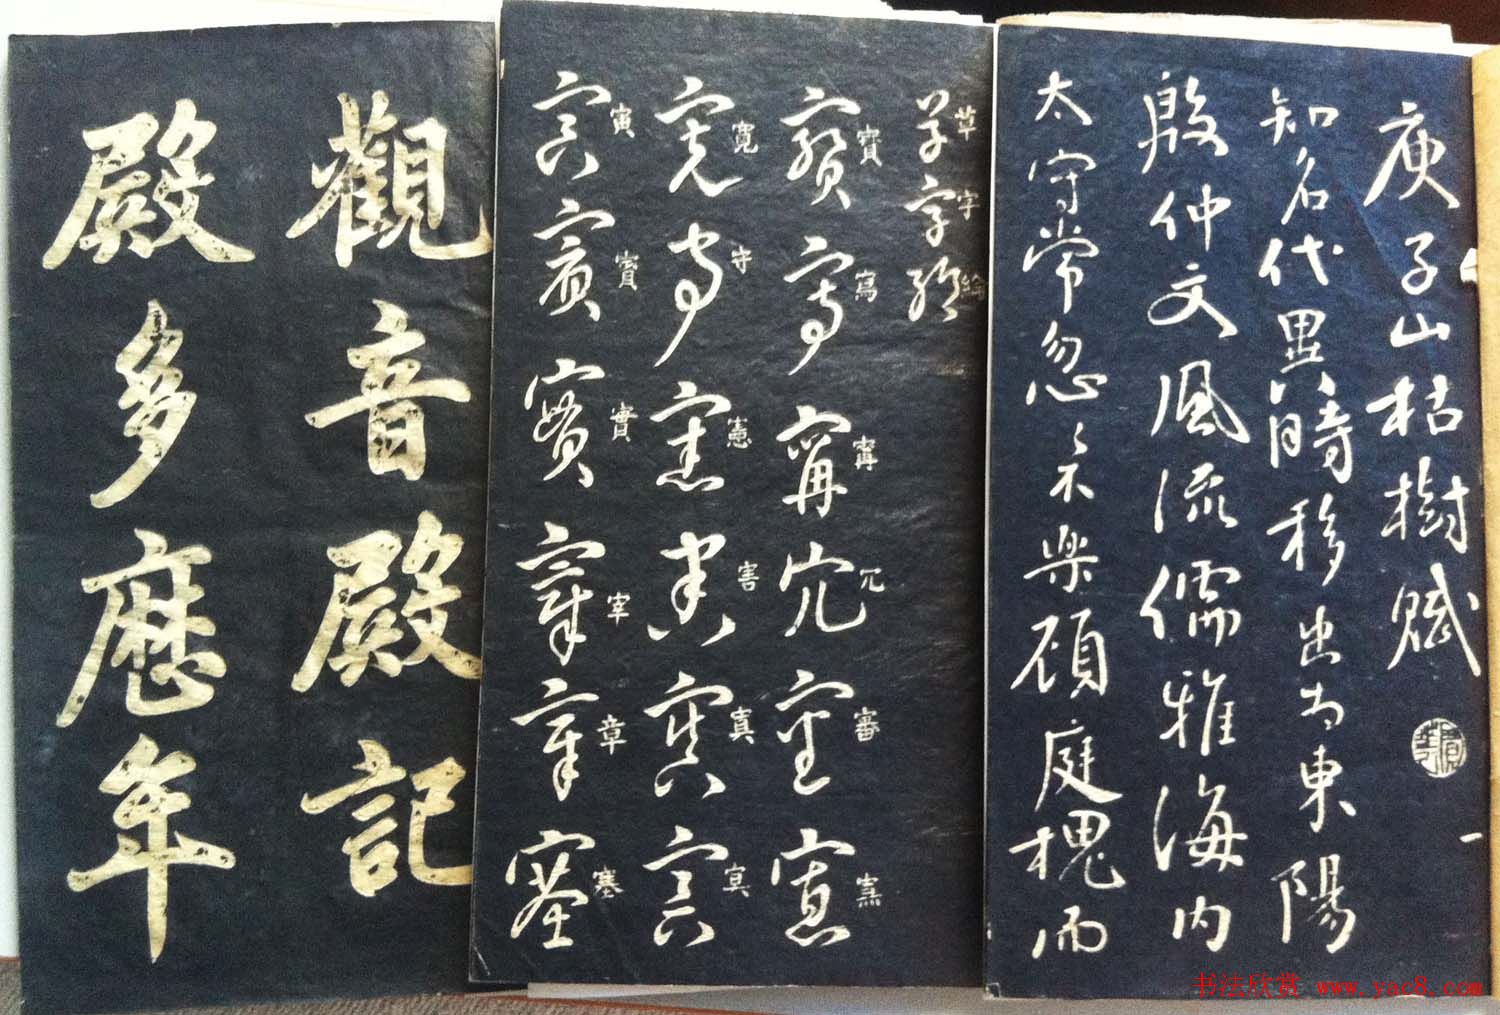 庾子山枯樹賦
知名代異時移出為東陽
殷仲文風流儒雅海內
太守常忽忽不樂顧庭槐而
草字綸
寶寫寗冗審
寬守憲害寘
寅賓實宰章塞
觀音殿記
殿多歷年
书法欣赏 www.yac8.com